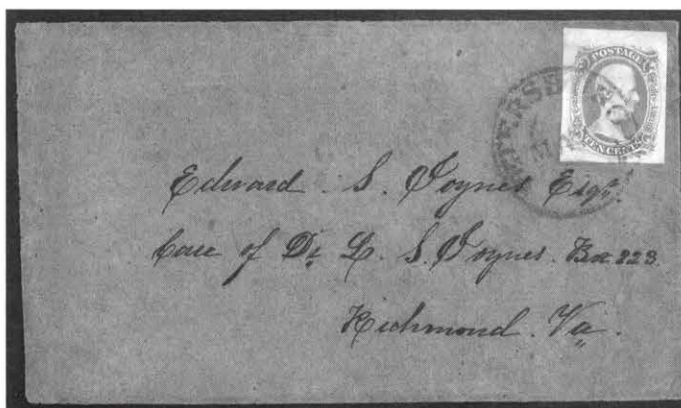 POSTAGE
TEN CENTS
Edward S. Joynes Esqr.
Care of Dr L. S. Joynes. Box 223.
Richmond. Va.